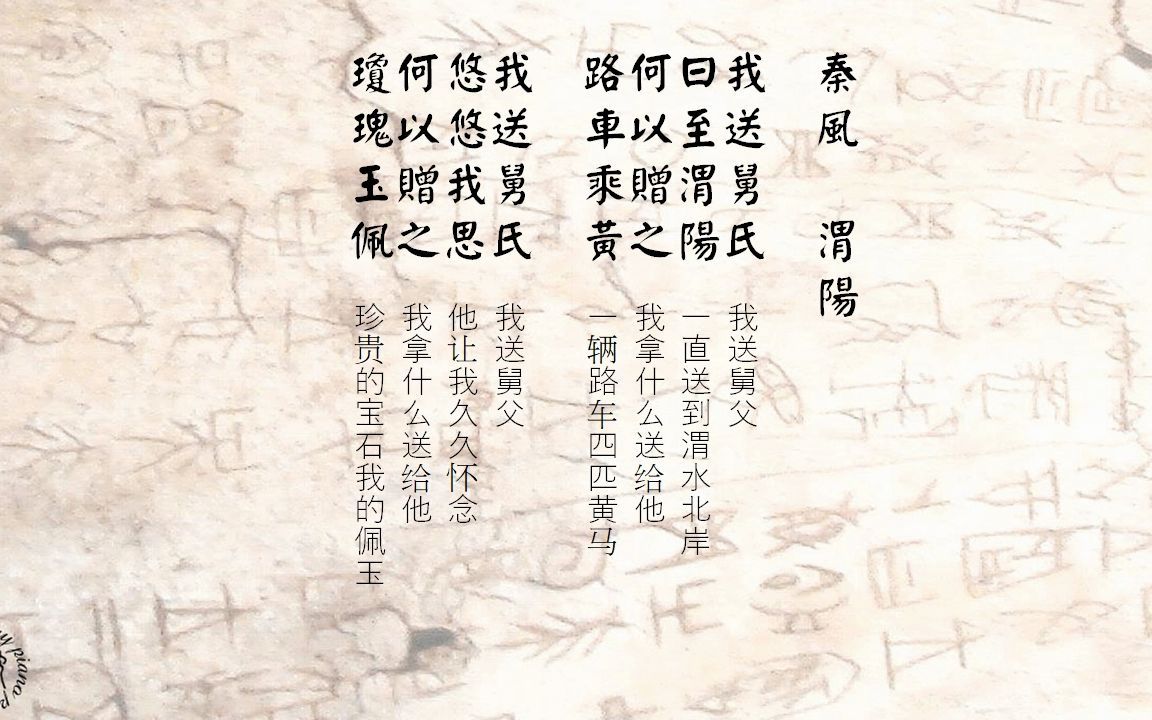 秦風 渭陽
我送舅氏
曰至渭陽
何以贈之
路車乘黃
我送舅父
一直送到渭水北岸
我拿什么送给他
一辆路车四匹黄马
我送舅氏
悠悠我思
何以贈之
瓊瑰玉佩
我送舅父
他让我久久怀念
我拿什么送给他
珍贵的宝石我的佩玉
piano